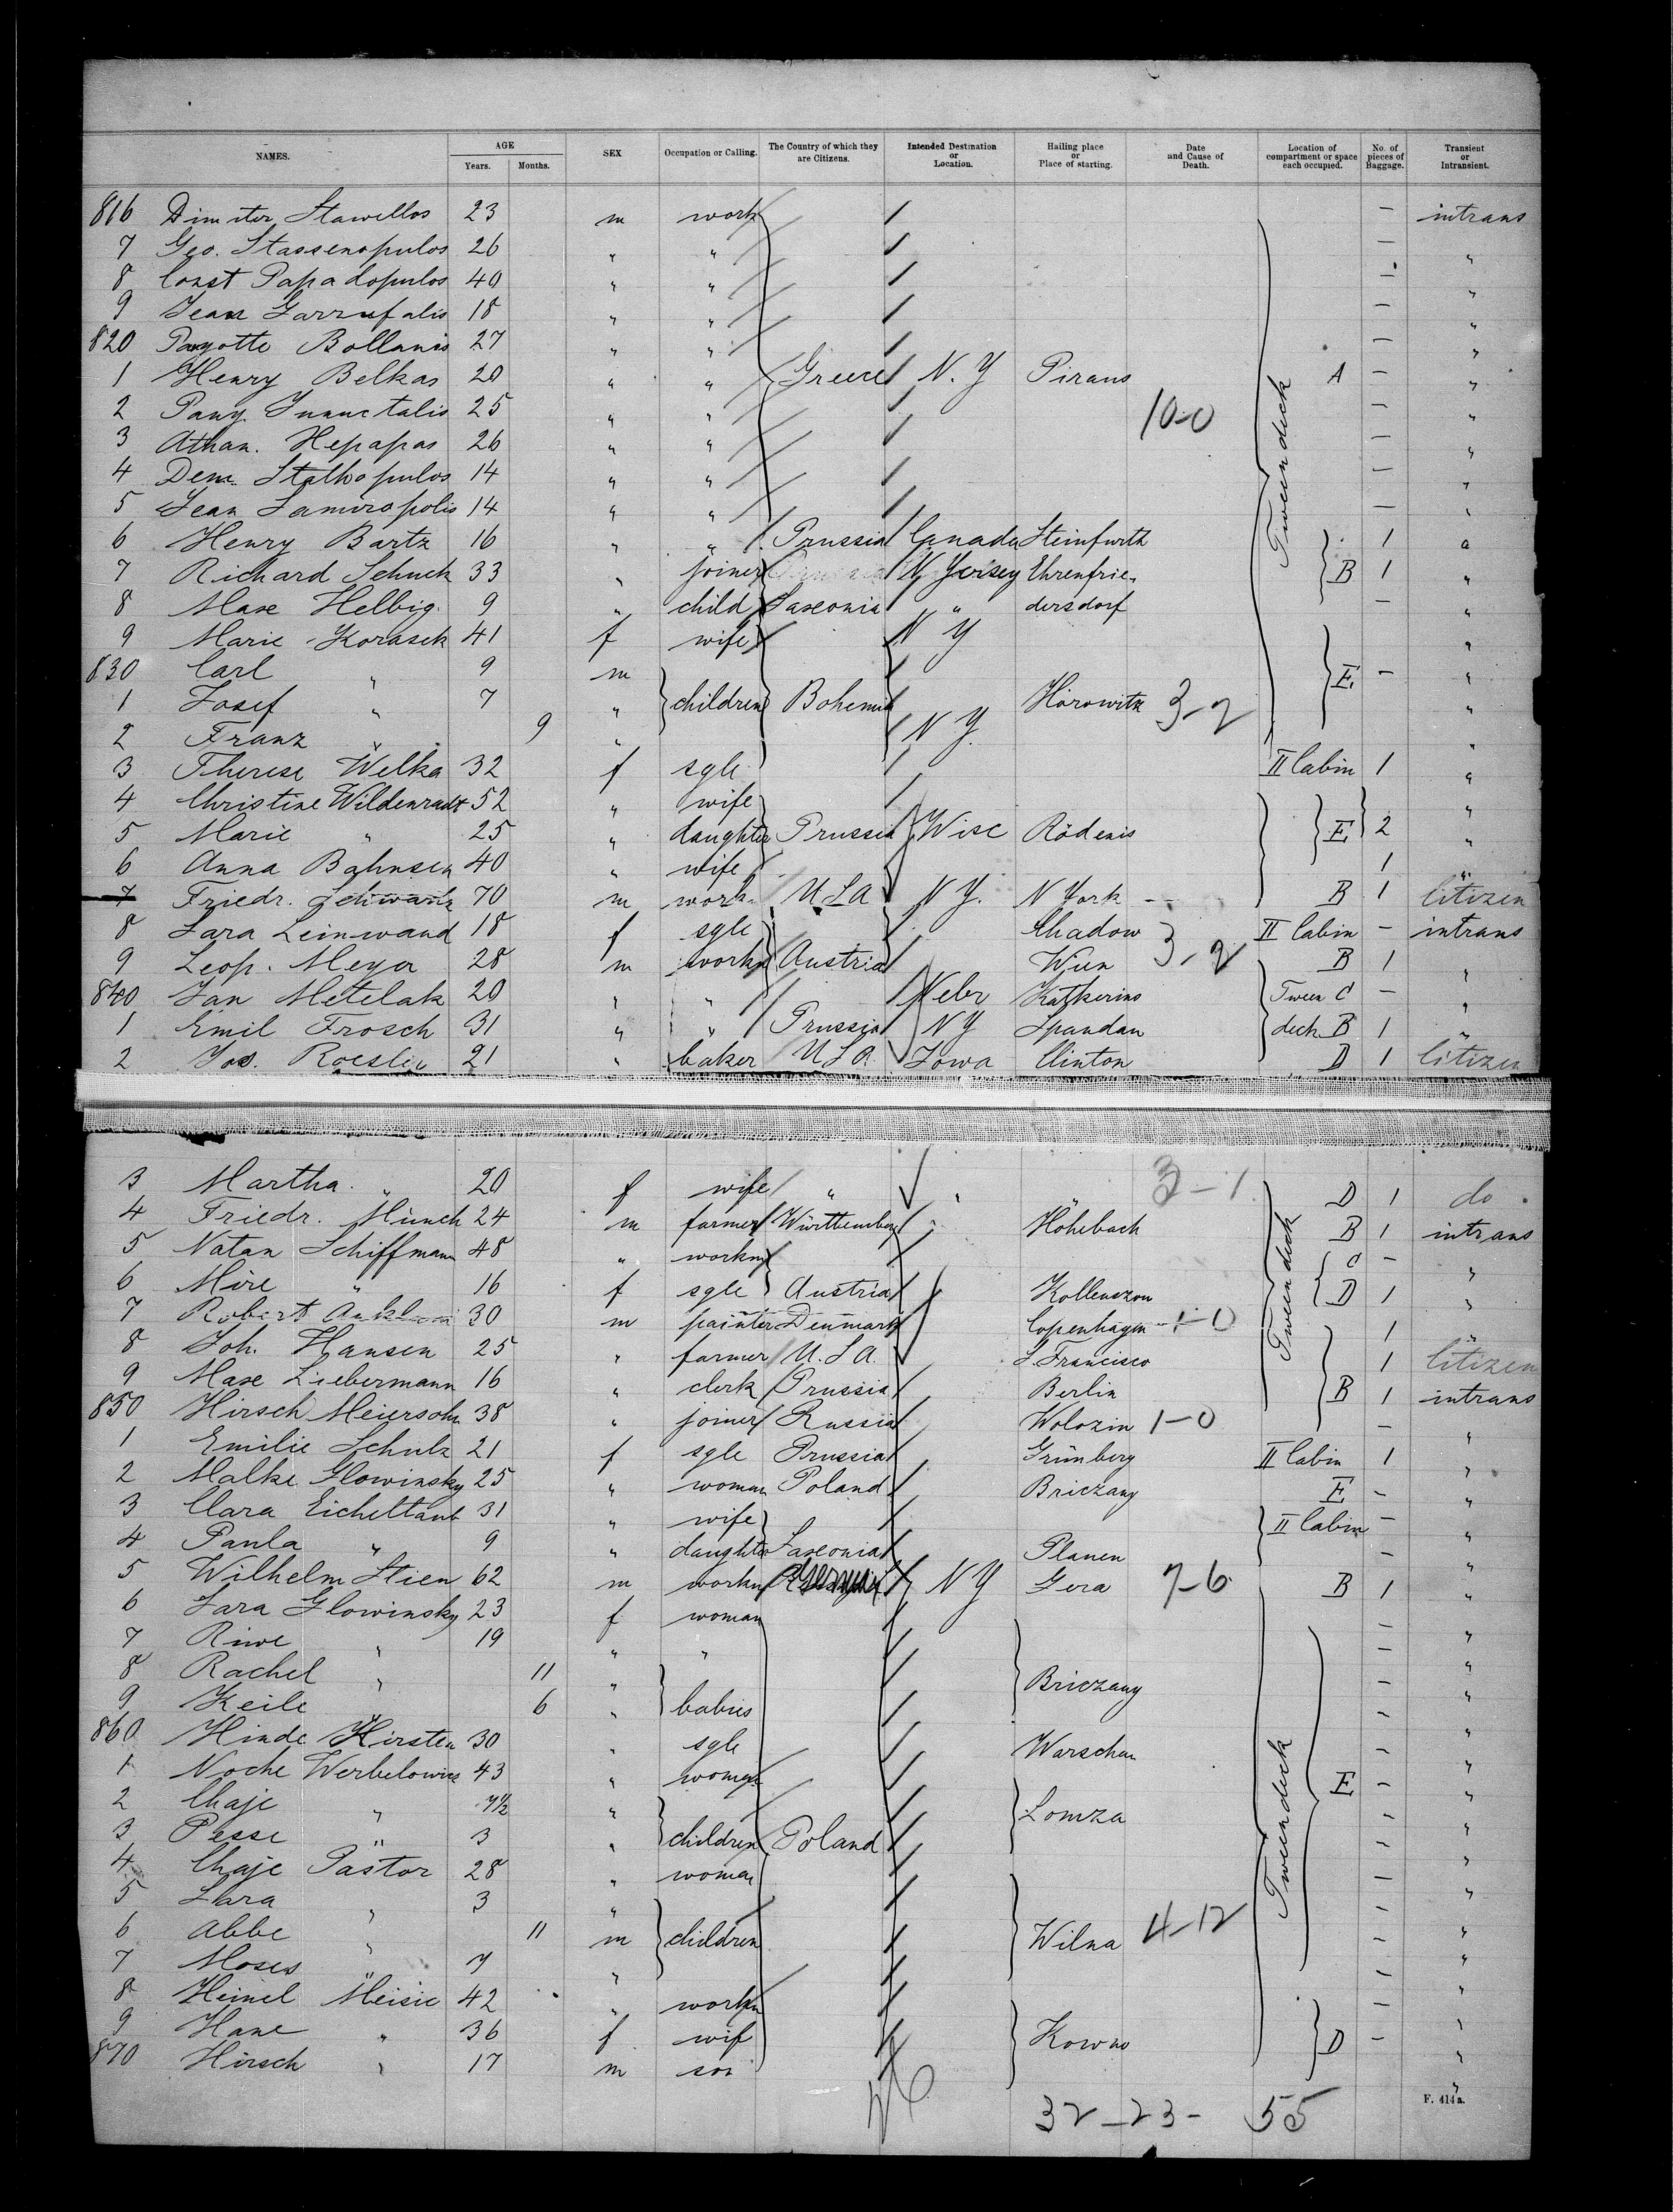 NAMES. AGE Years. Months. SEX Occupation or Calling. The Country of which they are Citizens. Intended Destination or Location. Hailing place or Place of starting. Date and Cause of Death. Location of compartment or space each occupied. No. of pieces of Baggage. Transient or Intransient.
816 Dimiter Stawellos 23 m work — intrans
7 Geo. Stassenopulos 26 " " — "
8 Const Papadopulos 40 " " — "
9 Jean Garrufalis 18 " " — "
820 Bollanis 27 " " — "
1 Henry Belkas 20 " " Greece N. Y Piraus A — "
2 Pany. 25 " " 10-0 — "
3 Athan. Hepapas 26 " " — "
4 Dem. Stathopulos 14 " " Tweendeck — "
5 Jean 14 " " — "
6 Henry Bartz 16 " " Prussia Canada Steinfurth 1 "
7 Richard Schuck 33 " joiner N Yersey Ehrenfrie- B 1 "
8 Max Helbig 9 " child Saxonia " dersdorf — "
9 Marie Korasek 41 f wife N Y "
830 Carl " 9 m E. — "
1 Josef " 7 " children Bohemia Horowitz 3-2 "
2 Franz " 9 " N Y. "
3 Therese Welka 32 f sgle II Cabin 1 "
4 Christine Wildenradt 52 " wife "
5 Marie " 25 " daughter Prussia Wisc Rödenis E 2 "
6 Anna Bahnsen 40 " wife 1 "
7 Friedr. Schwartz 70 m work U.S.A N Y. N York -- B 1 Citizen
8 Sara Leinwand 18 f sgle Chadow II Cabin - intrans
9 Leop. Meyer 28 m workm Austria Wien 3-2 B 1 "
840 Jan Metelak 20 " " Nebr Tween C - "
1 Emil Frosch 31 " " Prussia N Y Spandau deck B 1 "
2 Jos. Roesler 21 " baker U.S.A. Iowa Clinton D 1 Citizen
3 Martha " 20 f wife " " " 3-1 D 1 do
4 Friedr. Münch 24 m farmer Württemberg " Hohebach B 1 intrans
5 Natan Schiffmann 48 " workm C - "
6 Mire " 16 f sgle Austria D 1 "
7 Robert 30 m painter Denmark Copenhagen 1-0 Tweendeck 1 "
8 Joh. Hansen 25 " farmer U.S.A. S. Francisco 1 Citizen
9 Max Liebermann 16 " clerk Prussia Berlin B 1 intrans
850 Hirsch Meiersohn 38 " joiner Russia Wolozin 1-0 - "
1 Emilie Schulz 21 f sgle Prussia Grünberg II Cabin 1 "
2 Malke Glowinsky 25 " woman Poland Briczany E - "
3 Clara Eicheltaub 31 " wife II Cabin - "
4 Paula " 9 " daughter Saxonia Plauen - "
5 Wilhelm Stien 62 m workm Germany N Y Gera 7-6 B 1 "
6 Sara Glowinsky 23 f woman - "
7 Riwe " 19 " " - "
8 Rachel " 11 " Briczany - "
9 Keile " 6 " babies - "
860 Hinde Hirsten 30 " sgle Warschau - "
1 Noche Werbelowicz 43 " woman E - "
2 Chaje " 7½ " Lomza - "
3 Pesse " 3 " children Poland - "
4 Chaje Pastor 28 " woman Tweendeck - "
5 Sara " 3 " - "
6 Abbe " 11 m children Wilna 4-12 - "
7 Moses " 7 " - "
8 Heinel Meisic 42 " workm - "
9 Hane " 36 f wif Kowno D - "
870 Hirsch " 17 m son "
32 - 23 - 55
F. 414 a.